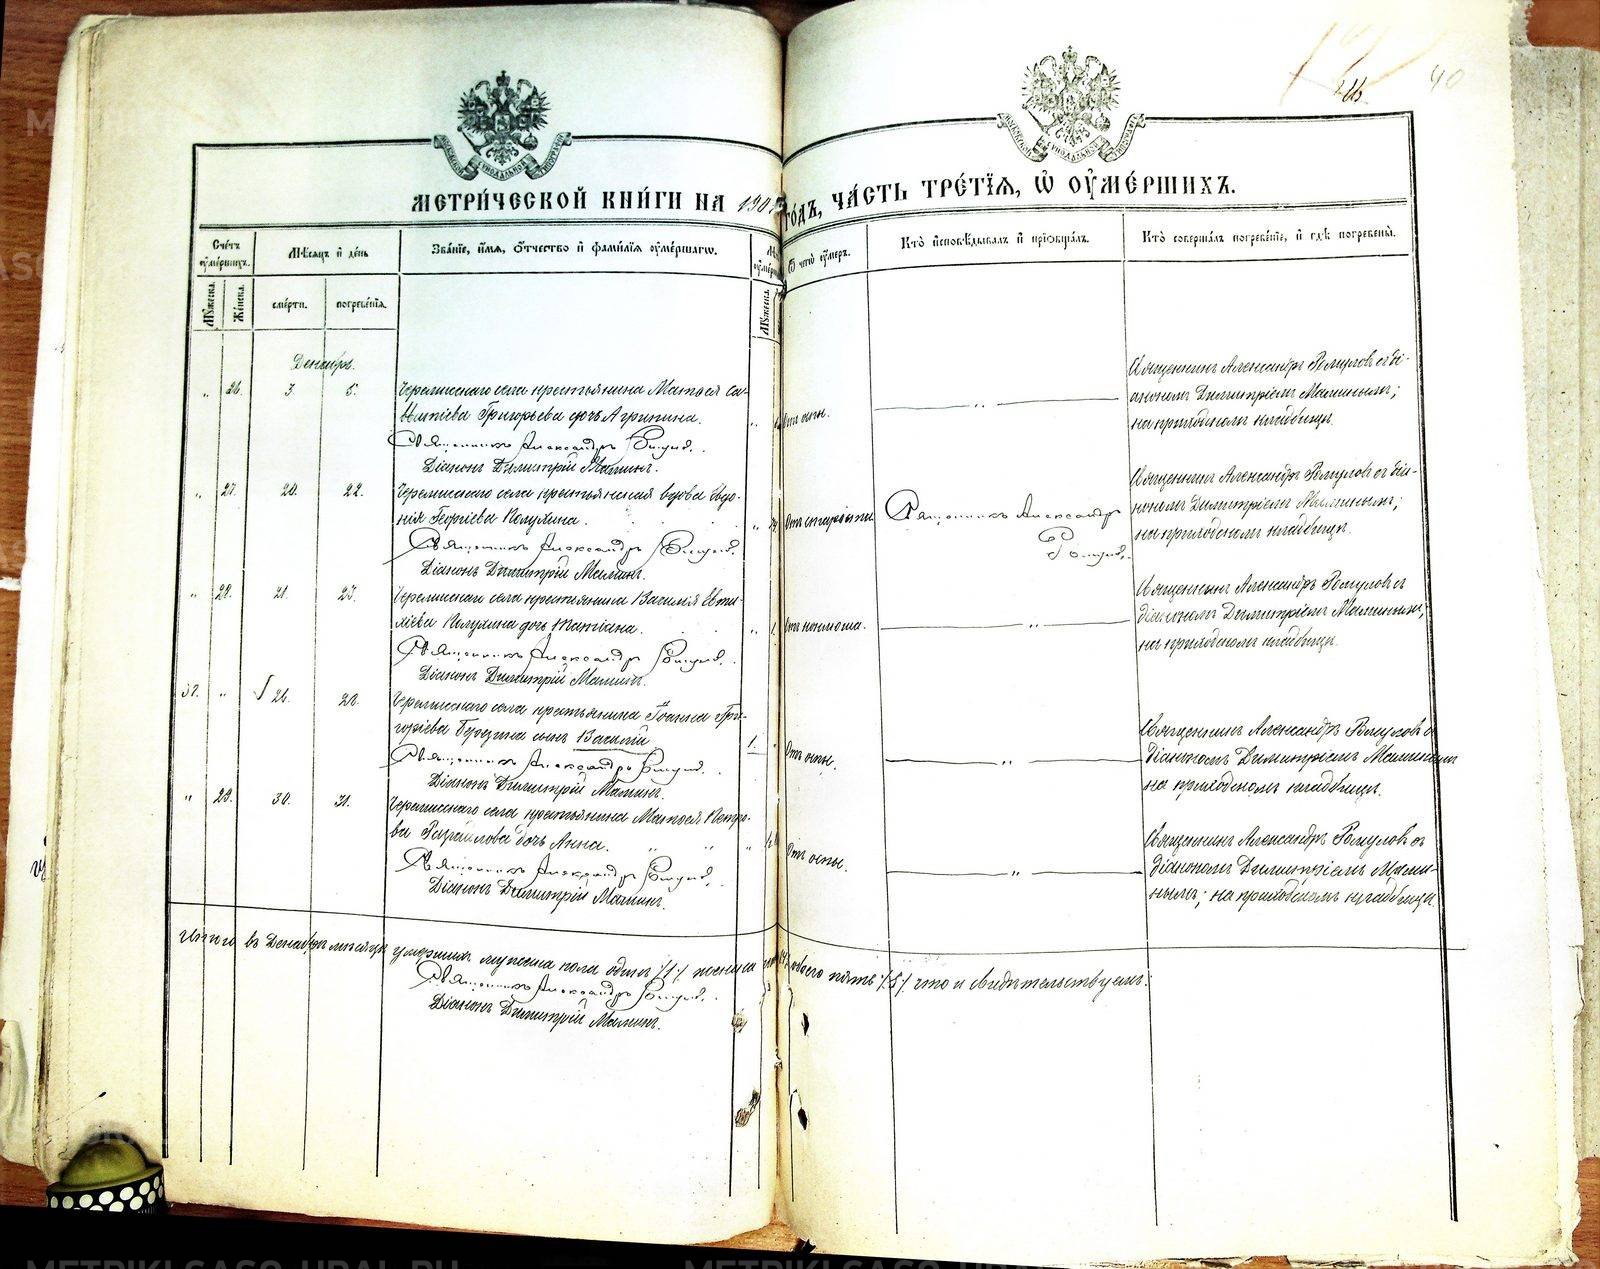 МЕТРИ́ЧЕСКОЙ КНИ́ГИ НА 190
го́дъ, ЧА́СТЬ ТРЕ́ТЇѦ, Ѡ҆ ОУ҆МЕ́РШИХЪ.
Сче́тъ оу҆ме́ршихъ.
Мꙋ́жеска.
Же́нска.
Мѣ́сяцъ и҆ де́нь
сме́рти.
погребе́нїѧ.
Зва́нїе, и҆́мѧ, ѻ҆́тчество и҆ фами́лїѧ оу҆ме́ршагѡ.
Мꙋ́жеска.
Ѿ чегѡ̀ оу҆́меръ.
Кто̀ и҆сповѣ́дывалъ и҆ прїѡбща́лъ.
Кто̀ соверша́лъ погребе́нїе, и҆ гдѣ̀ погребены̀.
40
Декабрь.
„ 26. 3. 5.
Черемисскаго села крестьянина Матѳея Са-
ватіева Григорьева дочь Агрипина.
Священникъ Александръ Ромулов.
Діаконъ Димитрій Маминъ.
Отъ оспы.
„
Священникъ Александръ Ромуловъ съ ді-
акономъ Димитріемъ Маминымъ;
на приходскомъ кладбищѣ.
„ 27. 20. 22.
Черемисскаго села крестьянская вдова Евдо-
кія Георгіева Колухина.
Священникъ Александръ Ромулов.
Діаконъ Димитрій Маминъ.
Отъ старости.
Священникъ Александръ
Ромулов.
Священникъ Александръ Ромуловъ съ діа-
кономъ Димитріемъ Маминымъ;
на приходскомъ кладбищѣ.
„ 28. 21. 23.
Черемисскаго села крестьянина Василія Евти-
хіева Колухина дочь Татіана.
Священникъ Александръ Ромулов.
Діаконъ Димитрій Маминъ.
„ 1.
Отъ коклюша.
„
Священникъ Александръ Ромуловъ съ
діакономъ Димитріемъ Маминымъ;
на приходскомъ кладбищѣ.
37. „ 26. 28.
Черемисскаго села крестьянина Іоанна Гри-
горіева Березина сынъ Василій
Священникъ Александръ Ромулов.
Діаконъ Димитрій Маминъ.
1.
Отъ оспы.
„
Священникъ Александръ Ромуловъ съ
діакономъ Димитріемъ Маминымъ
на приходскомъ кладбищѣ.
„ 29. 30. 31.
Черемисскаго села крестьянина Матѳея Петро-
ва дочь Анна.
Священникъ Александръ Ромулов.
Діаконъ Димитрій Маминъ.
Отъ оспы.
„
Священникъ Александръ Ромуловъ съ
діакономъ Димитріемъ Мами-
нымъ; на приходскомъ кладбищѣ.
Итого въ Декабрѣ мѣсяцѣ умершихъ мужеска пола одинъ /1/ женска обоего пять /5/ что и свидѣтельствуемъ:
Священникъ Александръ Ромулов.
Діаконъ Димитрій Маминъ.
METRIKI.SASO-URAL.RU